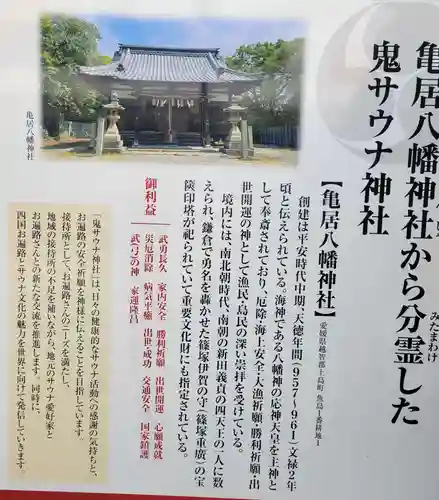 亀居八幡神社から分霊した
みたまわけ
鬼サウナ神社
【亀居八幡神社】
愛媛県越智郡上島町魚島一番耕地一
創建は平安時代中期、天徳年間（957〜961）文禄2年
頃と伝えられている。海神である八幡神の応神天皇を主神と
して奉斎されており、厄除・海上安全・大漁祈願・勝利祈願・出
世開運の神として漁民・島民の深い崇拝を受けている。
境内には、南北朝時代、南朝の新田義貞の四天王の一人に数
えられ、鎌倉で勇名を轟かせた篠塚伊賀の守（篠塚重廣）の宝
篋印塔が祀られていて重要文化財にも指定されている。
亀居八幡神社
御利益
武勇長久 家内安全 勝利祈願 出世開運 心願成就
災厄消除 病気平癒 出世・成功 交通安全 国家鎮護
武（弓）の神 家運隆昌
「鬼サウナ神社」は、日々の健康的なサウナ活動への感謝の気持ちと、
お遍路の安全祈願を神様に伝えることを目指しています。
接待所として、お遍路さんのニーズを満たし、
地域の接待所の不足を補いながら、地元のサウナ愛好家と
お遍路さんとの新たな交流を推進します。同時に、
四国お遍路とサウナ文化の魅力を世界に向けて発信していきます。